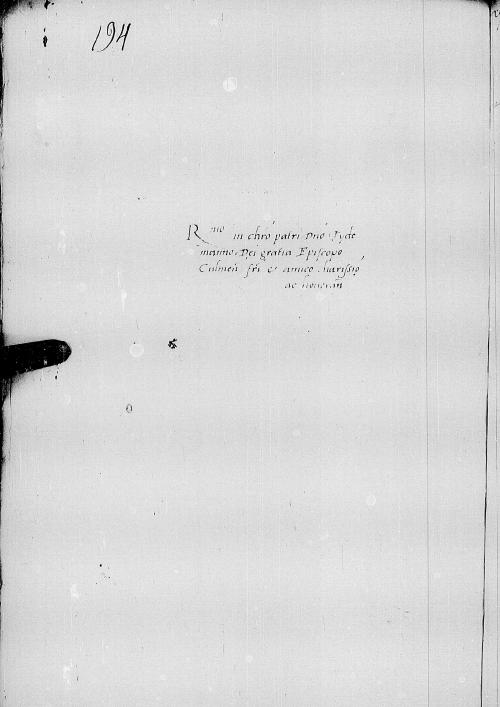 194
Rmo in chro patri Dno Tyde
manno Dei gratia Episcopo
Culmen fri et amico charissio
ac honoran